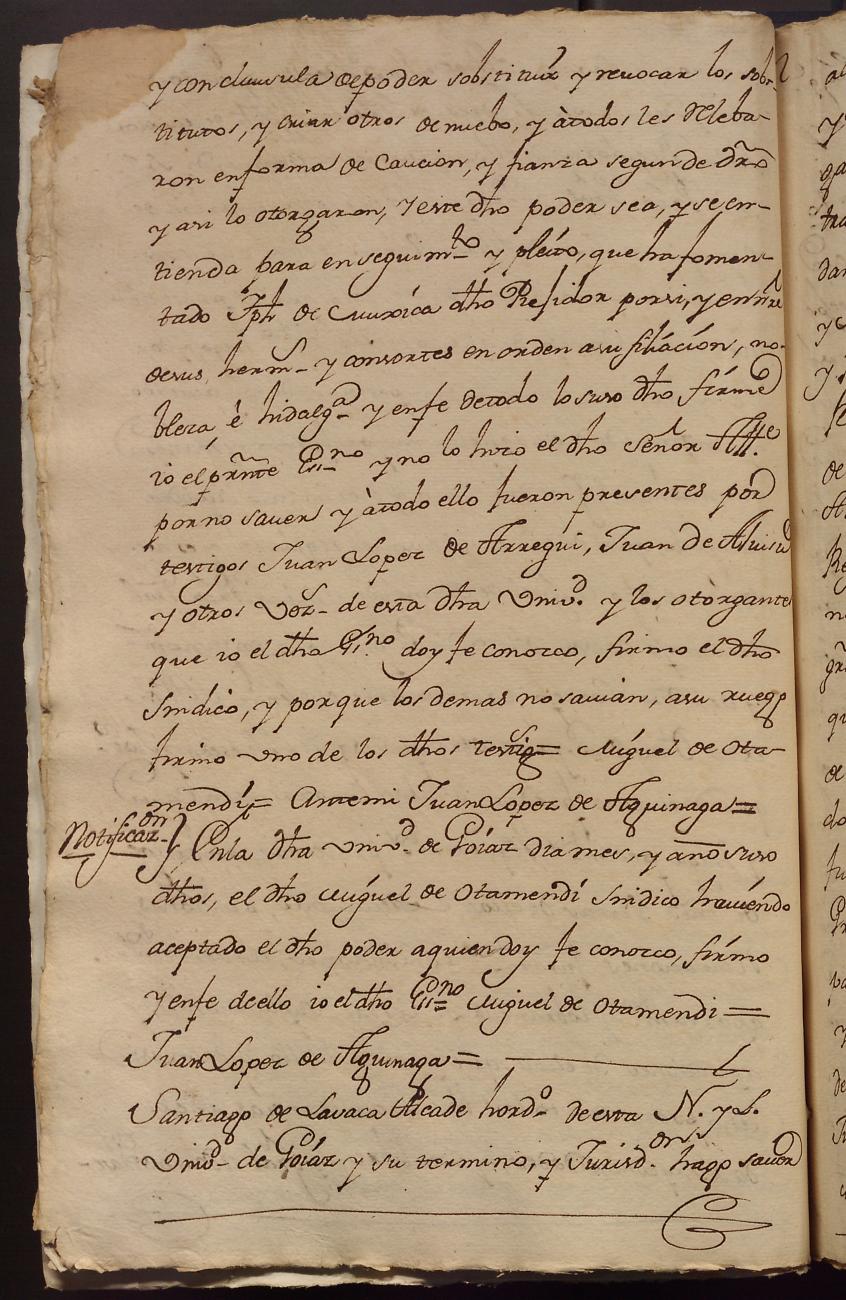 y con clausula de poder sobstituir y revocar los sobs-
titutos, y criar otros de nuebo, y à todos les Releba-
ron en forma de Caucion, y fianza segun de dro
y asi lo otorgaron, Y este dho poder sea, y se en-
tienda para en seguimto y pleito, que ha fomen-
tado Jph de Muxica dho Residor por si, y en nre
de sus herms y consortes en orden a su filiación, no-
bleza, è hidalga y en fe de todo lo suso dho firmé
io el prnte Essno y no lo hizo el dho Señor Alle
por no saver y à todo ello fueron presentes por
testigos Juan Lopez de Arregui, Juan de
y otros Vezs de esta dha Univd. y los otorgantes
que io el dho Essno doy fe conozco, firmo el dho
Sindico, y porque los demas no savian, a su ruego
firmo uno de los dhos testigs = Miguel de Ota-
mendi = Antemi Juan Lopez de Aguinaga =
Notificazon } En la dha Univd de Goiaz dia mes, y año suso
dhos, el dho Miguel de Otamendi Sindico haviendo
aceptado el dho poder a quien doy fe conozco, firmo
y en fe de ello io el dho Essno Miguel de Otamendi =
Juan Lopez de Aguinaga =
Santiago de Lavaca Alcade hordo de esta N. y L.
Univd de Goiaz y su termino, y Jurisdon hago saver